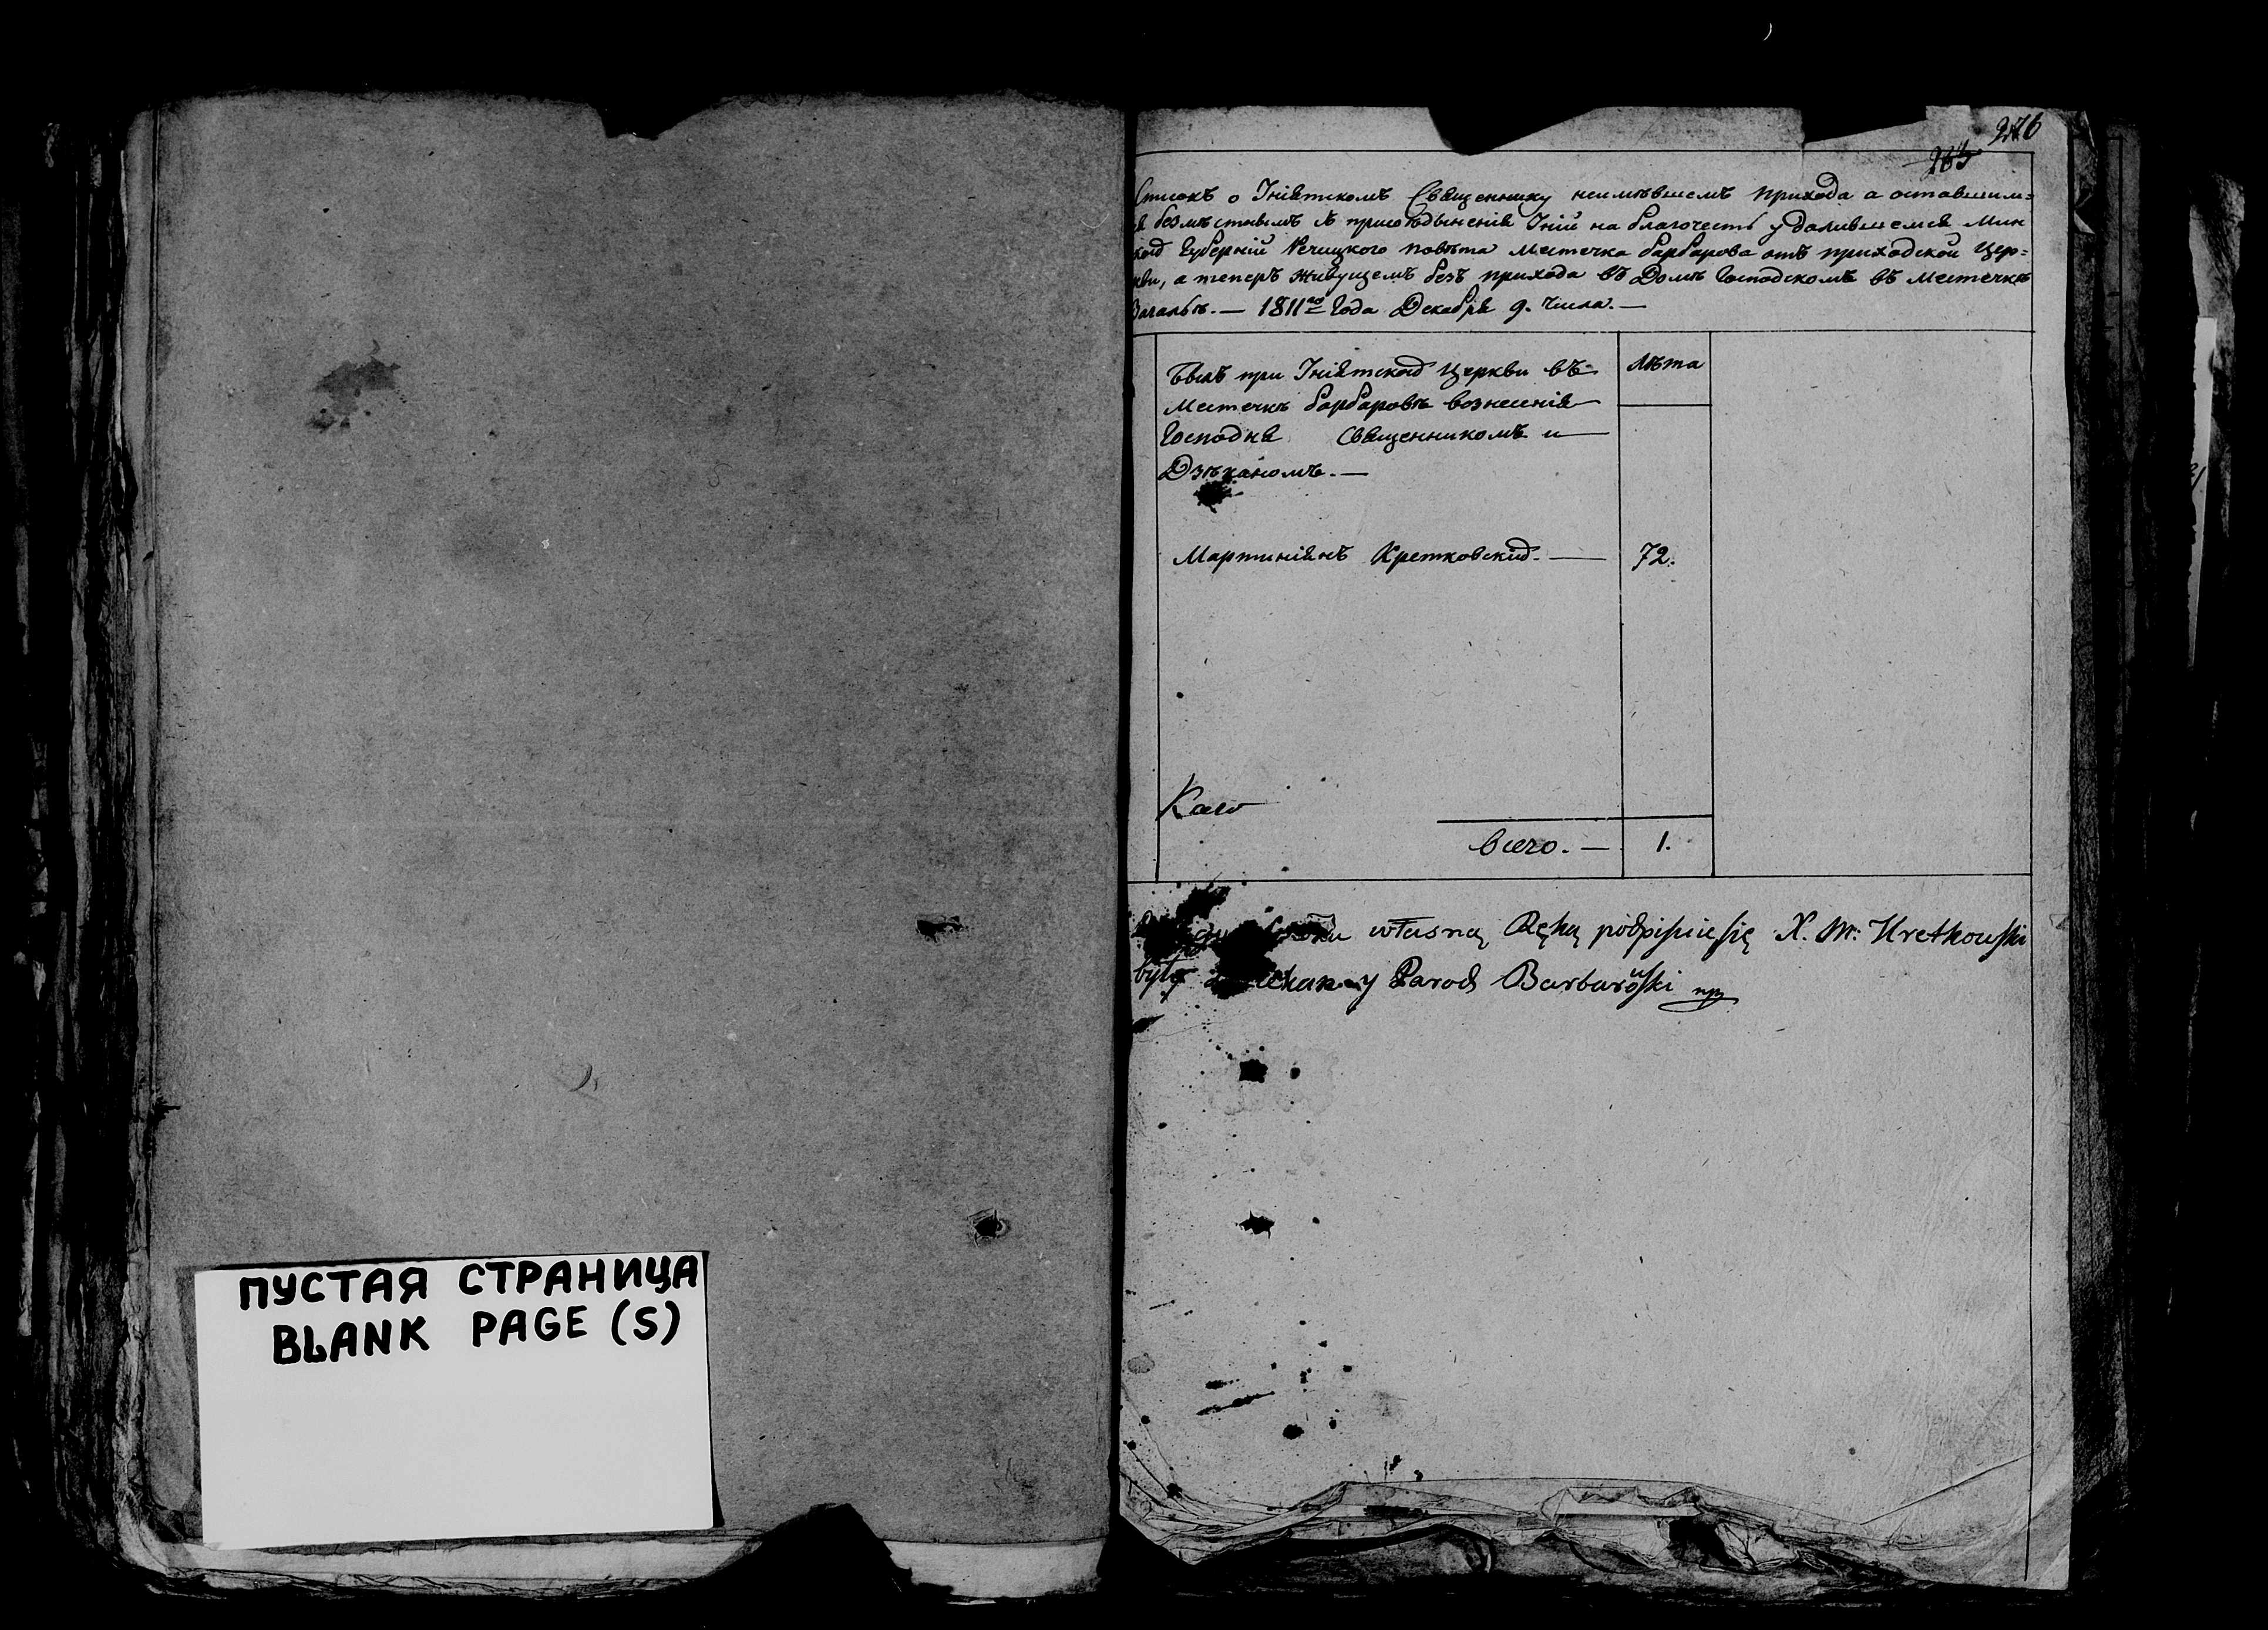 ПУСТАЯ СТРАНИЦА
BLANK PAGE (S)
276
Списокъ о Іуніятскомъ Священнику неимѣвшемъ прихода а оставшим=
ся безмѣстнымъ присоѣдыненія Уній на благочесть удалившемся Мин
ской Губерній Речицкого повѣта Местечка Барбарова отъ приходской Цер=
кви, а теперъ живущемъ безъ прихода въ Домѣ Господскомъ въ Местечкѣ
1811го Года Декабря 9. Числа. —
Былъ при Уніятской Церкви въ
Местечкѣ Барбаровѣ Вознесенія
Господня Священникомъ и
Дзѣканомъ. —
Лѣта
Мартиніянъ Кретковскій. — 72.
Всего. — 1.
własną Ręką podpisuie się X. M: Kretkowski
były y Paroch Barbarowski mp